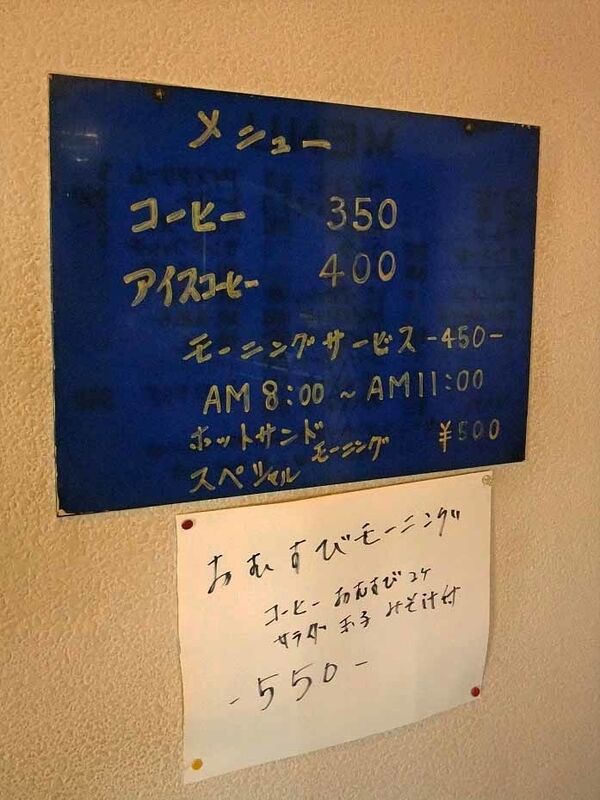 メニュー
コーヒー 350
アイスコーヒー 400
モーニングサービス -450-
AM 8:00 ~ AM 11:00
ホットサンド モーニング ¥500
スペシャル
おむすびモーニング
コーヒー おむすび 2ケ
サラダ 玉子 みそ汁付
-550-